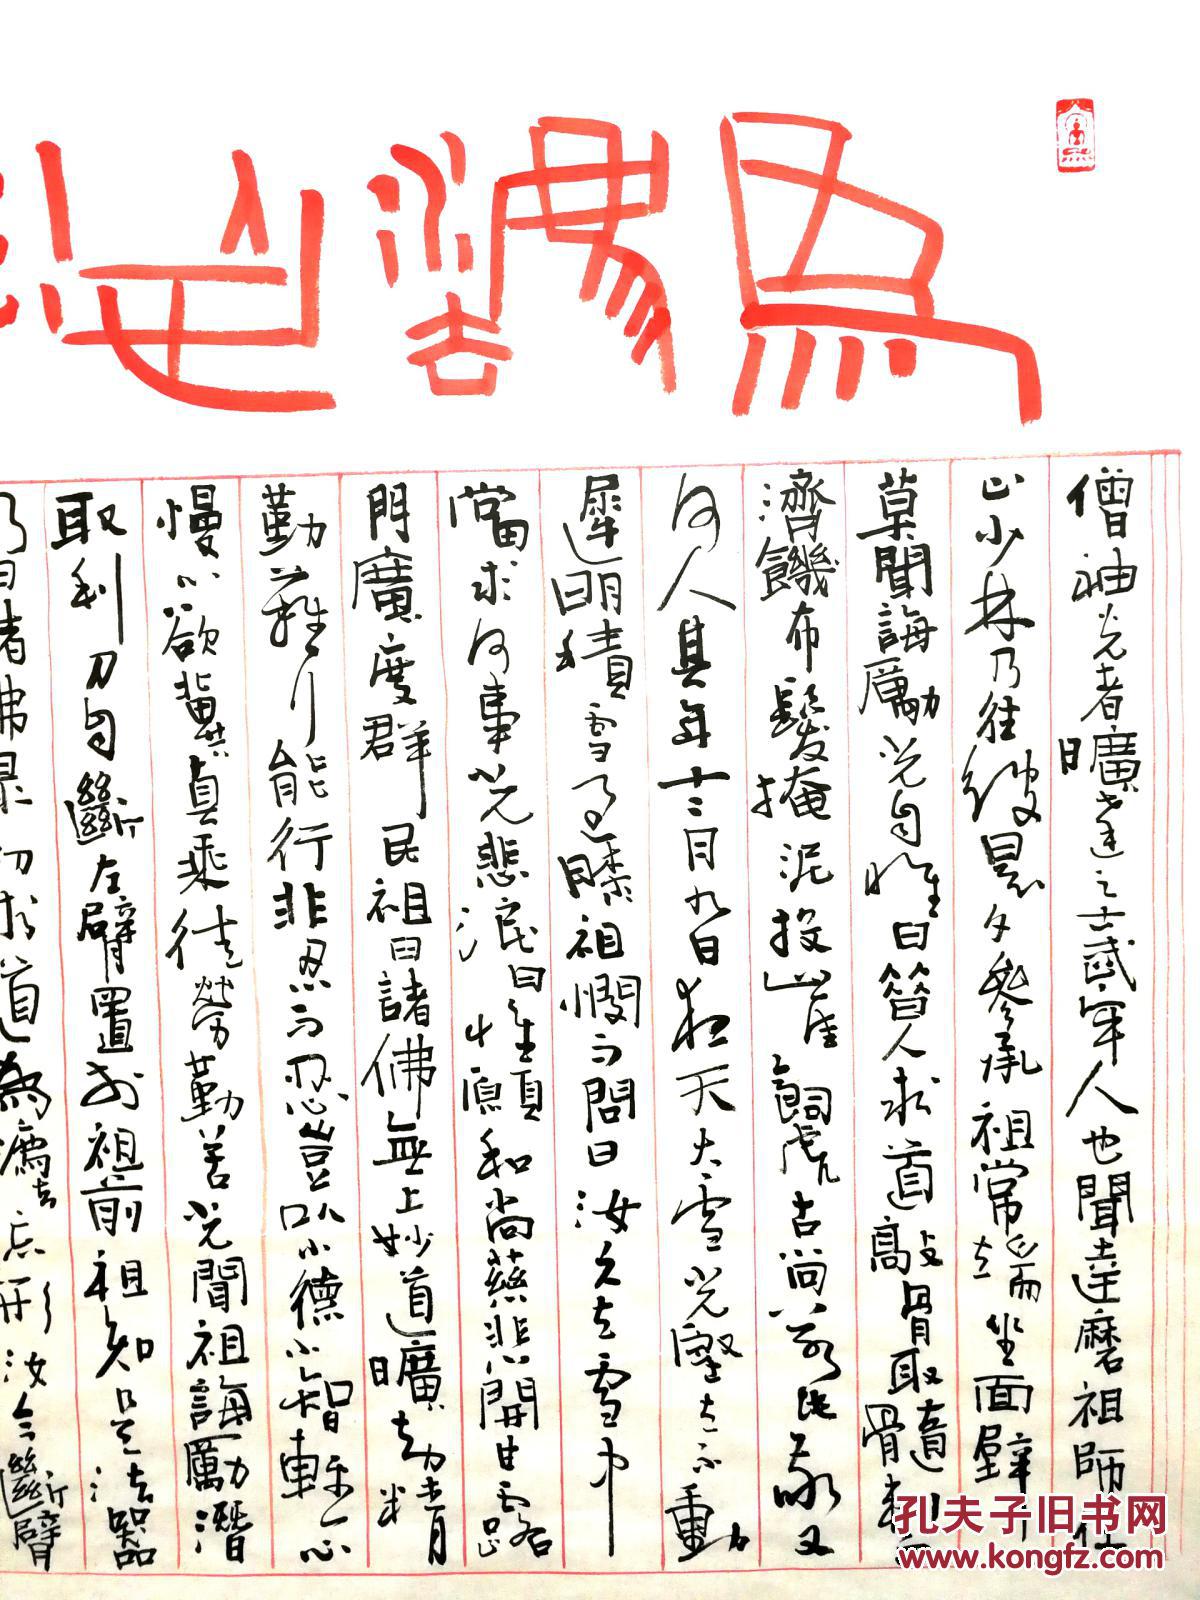 為灋忘
僧神光者曠達之士武牢人也聞達磨祖師住
止少林乃往彼晨夕參承祖常端坐面壁
莫聞誨勵光自惟曰昔人求道敲骨取髓
濟饑布髮掩泥投崖飼虎古尚若此我又
何人其年十二月九日夜天大雪光堅立不動
遲明積雪過膝祖憫而問曰汝久立雪中
當求何事光悲淚曰惟願和尚慈悲開甘露
門廣度群民祖曰諸佛無上妙道曠劫精
勤難行能行非忍而忍豈以小德小智輕心
慢心欲冀真乘徒勞勤苦光聞祖誨勵潛
取利刀自斷左臂置於祖前祖知是法器
乃曰諸佛最初求道為灋忘形汝今斷臂
孔夫子旧书网
www.kongfz.com